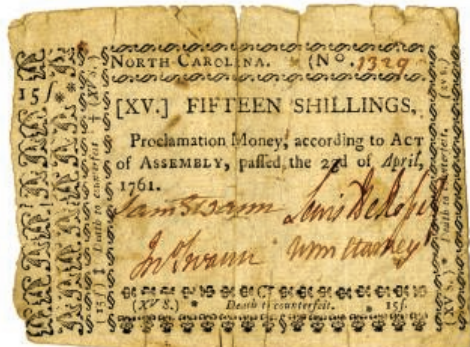 NORTH CAROLINA. (No. 1329
15/
(XV S.)
[XV.] FIFTEEN SHILLINGS,
Proclamation Money, according to ACT
of ASSEMBLY, passed the 23d of April,
1761.
Sam Swann Lewis DeRosset
Jno Swann
(XV S.) * Death to counterfeit. * 15/.
15/ ‡ Death to counterfeit ‡ (XV S.)
(XV S.) * Death to counterfeit.